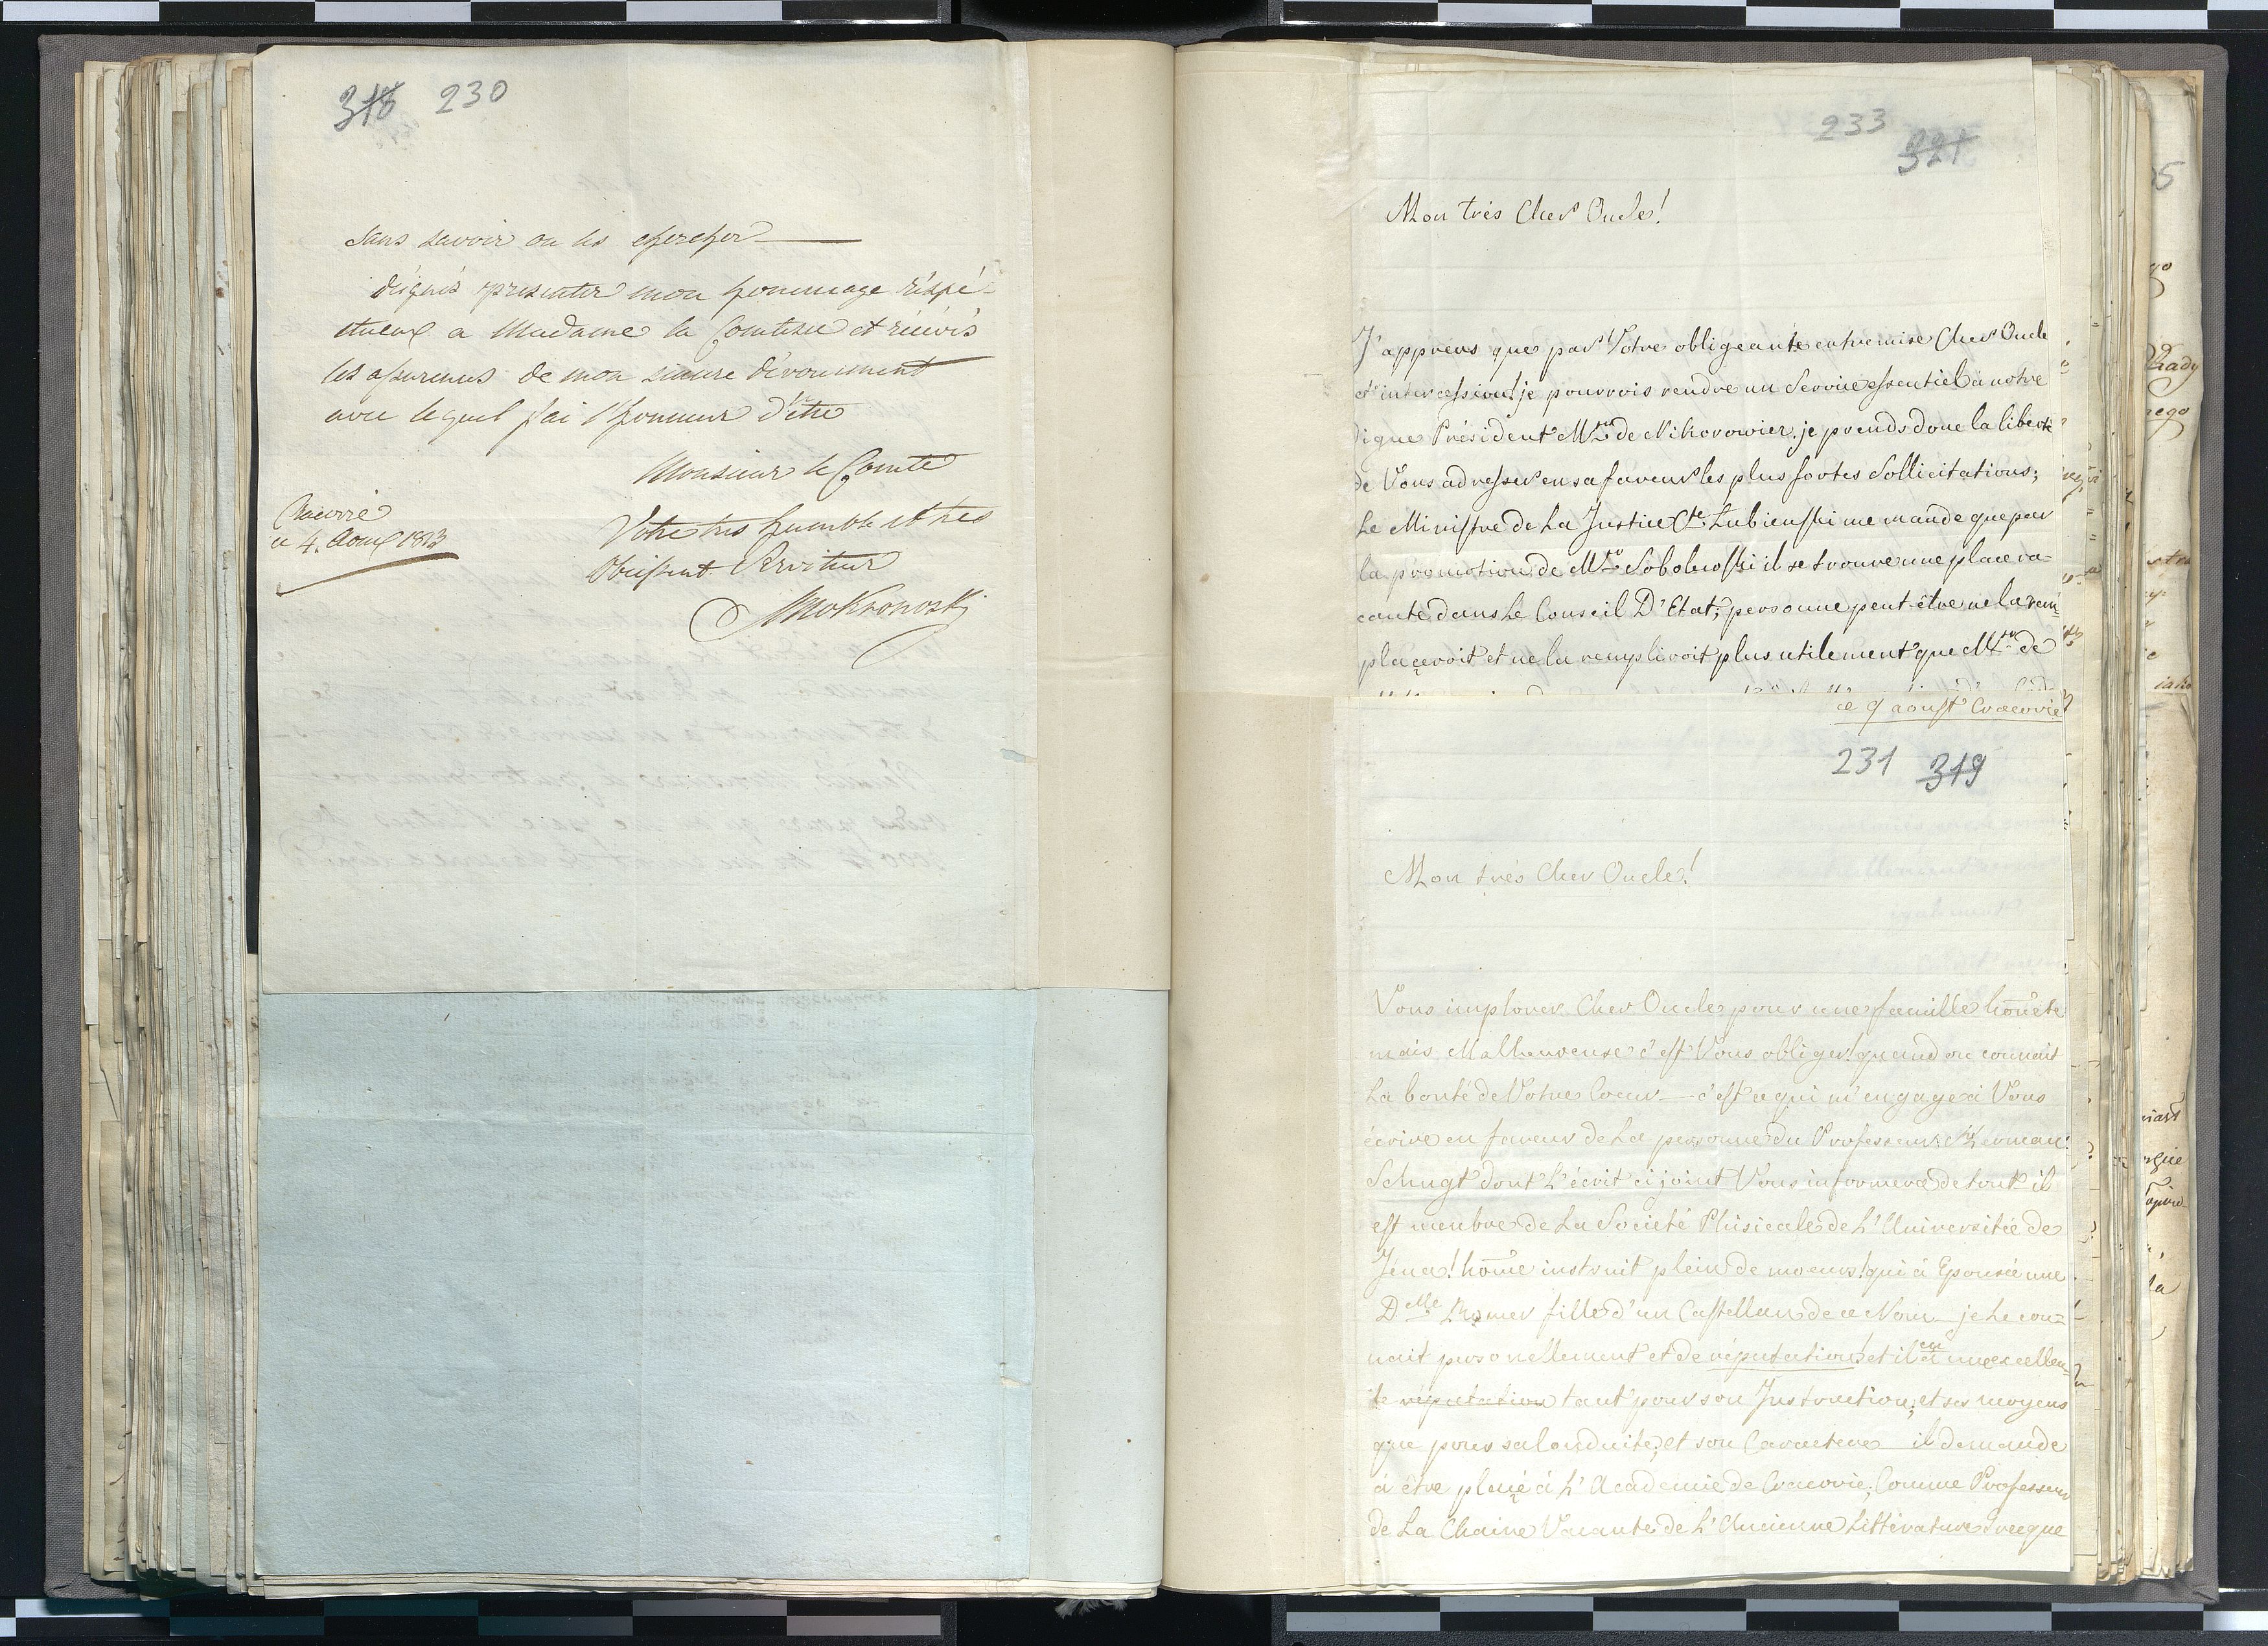 318 230
sans savoir ou les chercher
daignés presenter mon hommage réspé-
ctueux a Madame la Comtesse et récévés
les assurences de mon sincere dévouement
avec lequel j'ai l'honneur d'être
Monsieur le Comte
Votre tres humble et tres
Obeissent Serviteur
Mokronoski
Cracovie
ce 4. Aout 1813
233
321
Mon très Cher Oncle!
J'apprens que par Votre obligeante entremise Cher Oncle
et intercession! je pourrois rendre un Service essentiel à notre
digne Président Mr de Nikorowicz. je prends donc la liberté
de Vous adresser en sa faveur les plus fortes Sollicitations;
Le Ministre de La Justice Cte Lubienski me mande que par
la promotion de Mr Sobolewski il se trouve une place va-
cante dans Le Conseil D'Etat; personne peut-être ne la rem-
plaçeroit et ne la rempliroit plus utilement que Mr de
ce 9 aoust Cracovie
231 319
Mon très Cher Oncle!
Vous implorer Cher Oncle pour une famille honête
mais Malheureuse c'est Vous obliger! quand on connait
La bonté de Votre Coeur — c'est ce qui m'engage à Vous
écrire en faveur de La personne du Professeur Herman:
Schugt dont L'écrit ci joint Vous informera de tout il
est menbre de La Societé Phisicale de L'Universitée de
Jena! home instruit plein de moeurs! qui à Epousée une
Delle Romer fille d'un Castellan de ce Nom — je Le con-
nait personellement et de réputation! et il a une excellen-
te réputation tant pour son Instruction; et ses moyens
que pour sa Conduite; et son Caractere il demande
à être plaçé à L'Academie de Cracovie; Comme Professeur
de La Chaire Vacante de L'Ancienne Littérature Grecque